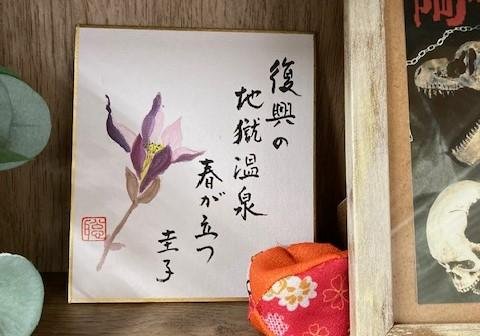 復興の
地獄温泉
春が立つ
圭子